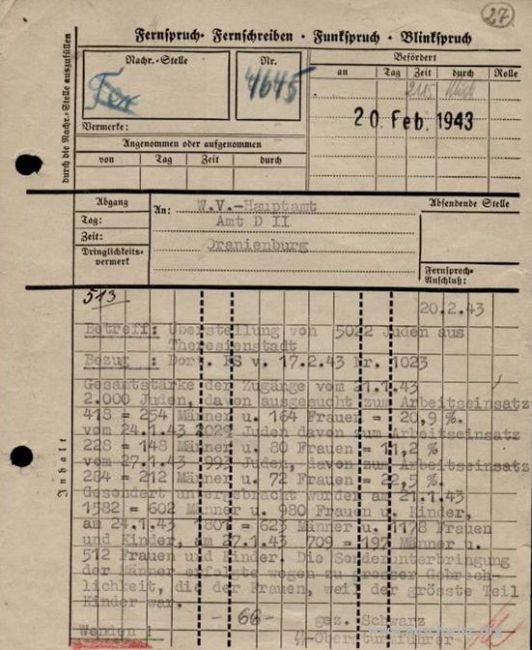 27
Fernspruch · Fernschreiben · Funkspruch · Blinkspruch
durch die Nachr.-Stelle auszufüllen
Nachr.-Stelle
Nr.
4645
Vermerke:
Befördert
an Tag Zeit durch Rolle
2115
20 Feb. 1943
Angenommen oder aufgenommen
von Tag Zeit durch
Abgang
Tag:
Zeit:
Dringlichkeits-
vermerk
An: W.V.-Hauptamt
Amt D II
Oranienburg
Absendende Stelle
Fernsprech-
Anschluß:
513
20.2.43
Betreff: Überstellung von 5022 Juden aus
Theresienstadt
Bezug : Dort. FS v. 17.2.43 Nr. 1023
Inhalt
Gesamtstärke der Zugänge vom 21.1.43
2.000 Juden, davon ausgesucht zum Arbeitseinsatz
418 = 254 Männer u. 164 Frauen = 20,9 %.
vom 24.1.43 2029 Juden davon zum Arbeitseinsatz
228 = 148 Männer u. 80 Frauen = 11,2 %
vom 27.1.43 993 Juden, davon zum Arbeitseinsatz
284 = 212 Männer u. 72 Frauen = 22,5 %.
Gesondert untergebracht wurden am 21.1.43
1582 = 602 Männer u. 980 Frauen u. Kinder,
am 24.1.43 1801 = 623 Männer u. 1178 Frauen
und Kinder, am 27.1.43 709 = 197 Männer u.
512 Frauen und Kinder. Die Sonderunterbringung
der Männer erfolgte wegen zu grosser Gebrech-
lichkeit, die der Frauen, weil der grösste Teil
Kinder war.
- 66 - gez. Schwarz
Wenden ! ᛋᛋ-Obersturmführer